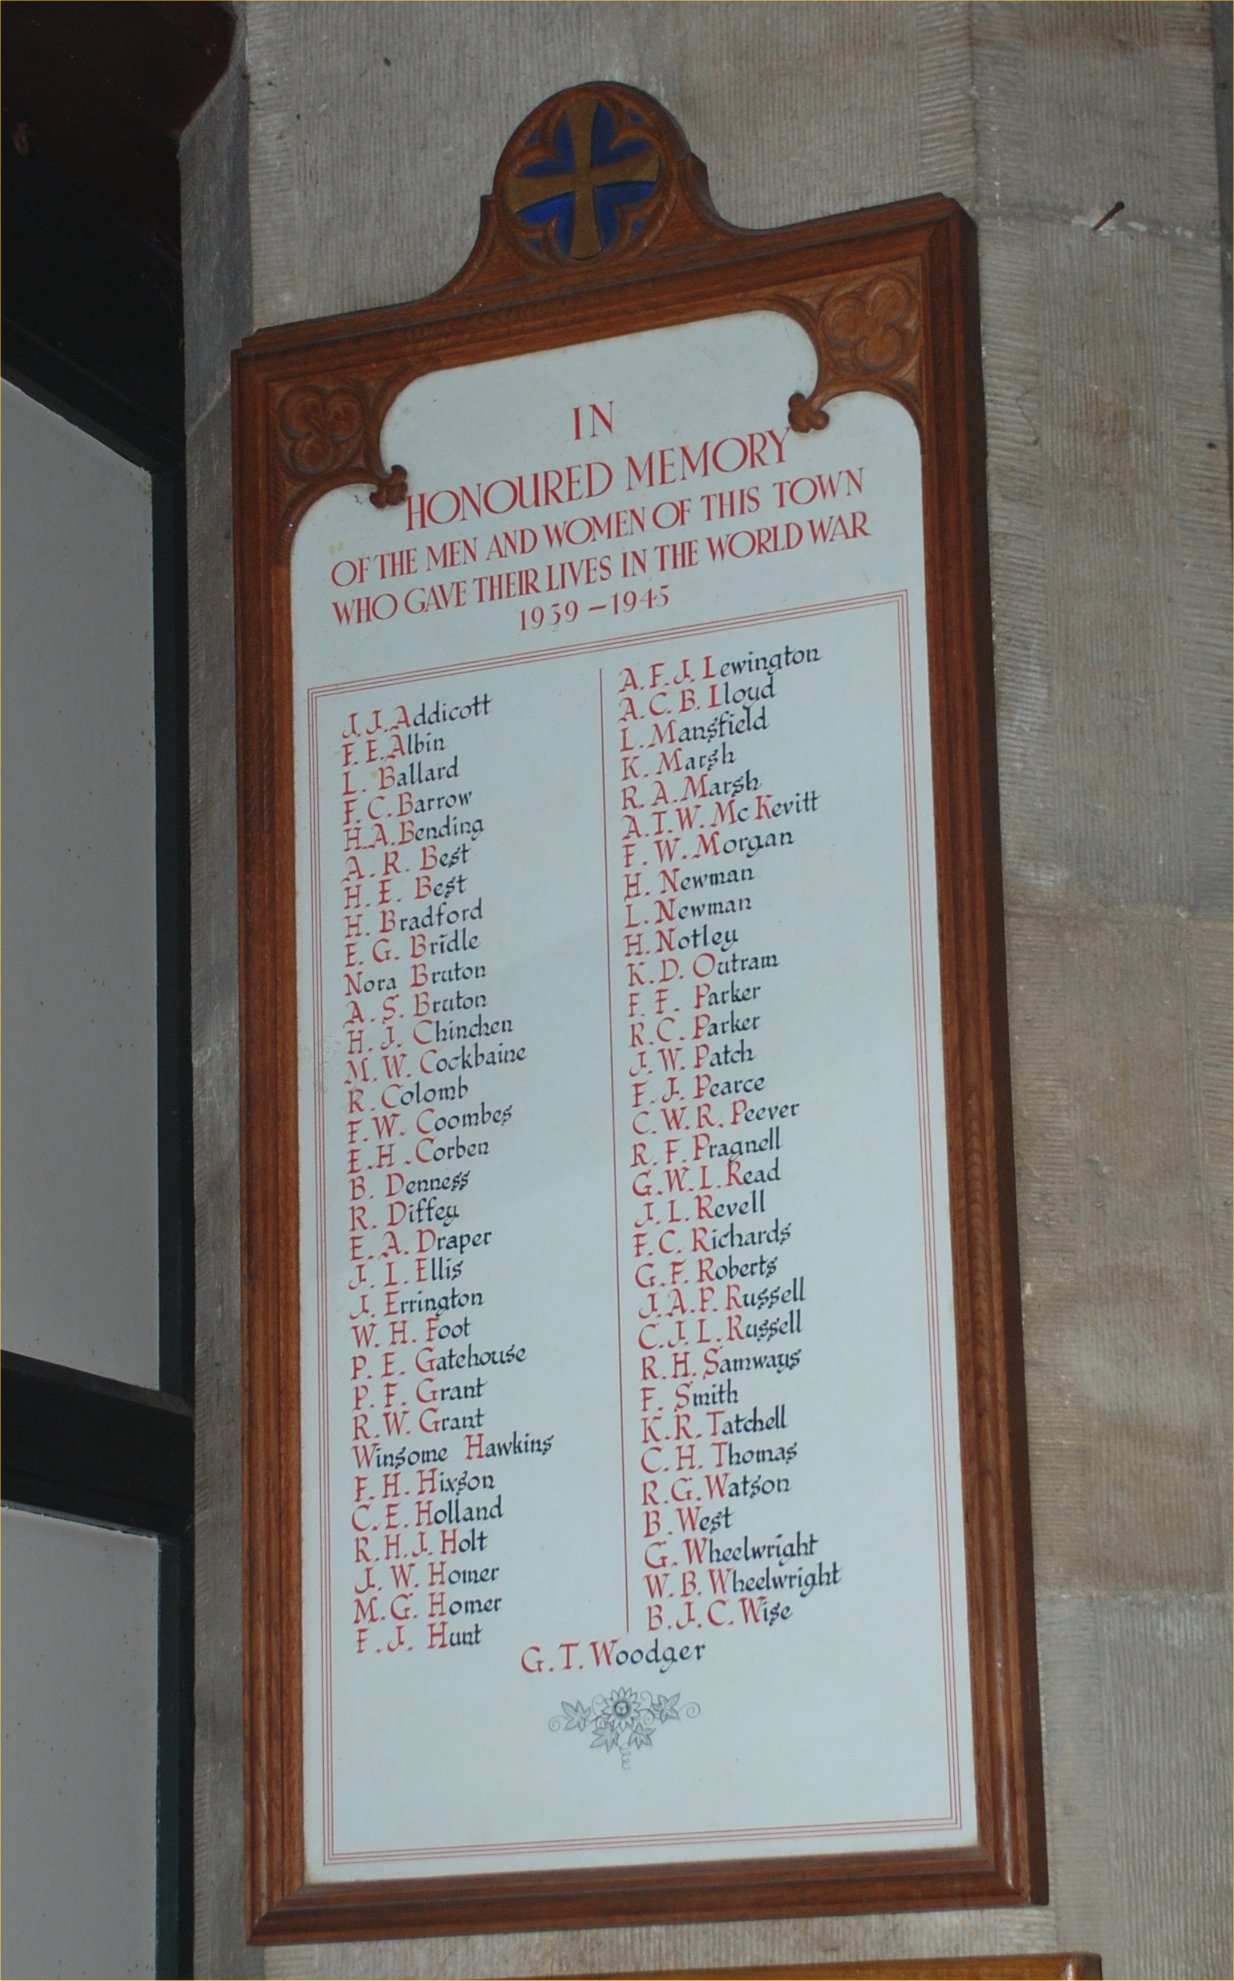 IN
HONOURED MEMORY
OF THE MEN AND WOMEN OF THIS TOWN
WHO GAVE THEIR LIVES IN THE WORLD WAR
1939 – 1945
J. J. Addicott
F. E. Albin
L. Ballard
F. C. Barrow
H. A. Bending
A. R. Best
H. E. Best
H. Bradford
E. G. Bridle
Nora Bruton
A. S. Bruton
H. J. Chinchen
M. W. Cockbaine
R. Colomb
F. W. Coombes
E. H. Corben
B. Denness
R. Diffey
E. A. Draper
J. L. Ellis
J. Errington
W. H. Foot
P. E. Gatehouse
P. F. Grant
R. W. Grant
Winsome Hawkins
F. H. Hixson
C. E. Holland
R. H. J. Holt
J. W. Homer
M. G. Homer
F. J. Hunt
A. F. J. Lewington
A. C. B. Lloyd
L. Mansfield
K. Marsh
R. A. Marsh
A. I. W. Mc Kevitt
F. W. Morgan
H. Newman
L. Newman
H. Notley
K. D. Outram
F. F. Parker
R. C. Parker
J. W. Patch
F. J. Pearce
C. W. R. Peever
R. F. Pragnell
G. W. L. Read
J. L. Revell
F. C. Richards
G. F. Roberts
J. A. P. Russell
C. J. L. Russell
R. H. Samways
F. Smith
K. R. Tatchell
C. H. Thomas
R. G. Watson
B. West
G. Wheelwright
W. B. Wheelwright
B. J. C. Wise
G. T. Woodger